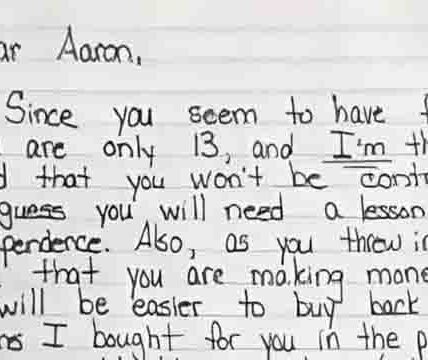 Aaron,
Since you seem to have
are only 13, and I'm
that you won't be
guess you will need a lesson
Also, as you threw
that you are making
will be easier to buy back
I bought for you in the